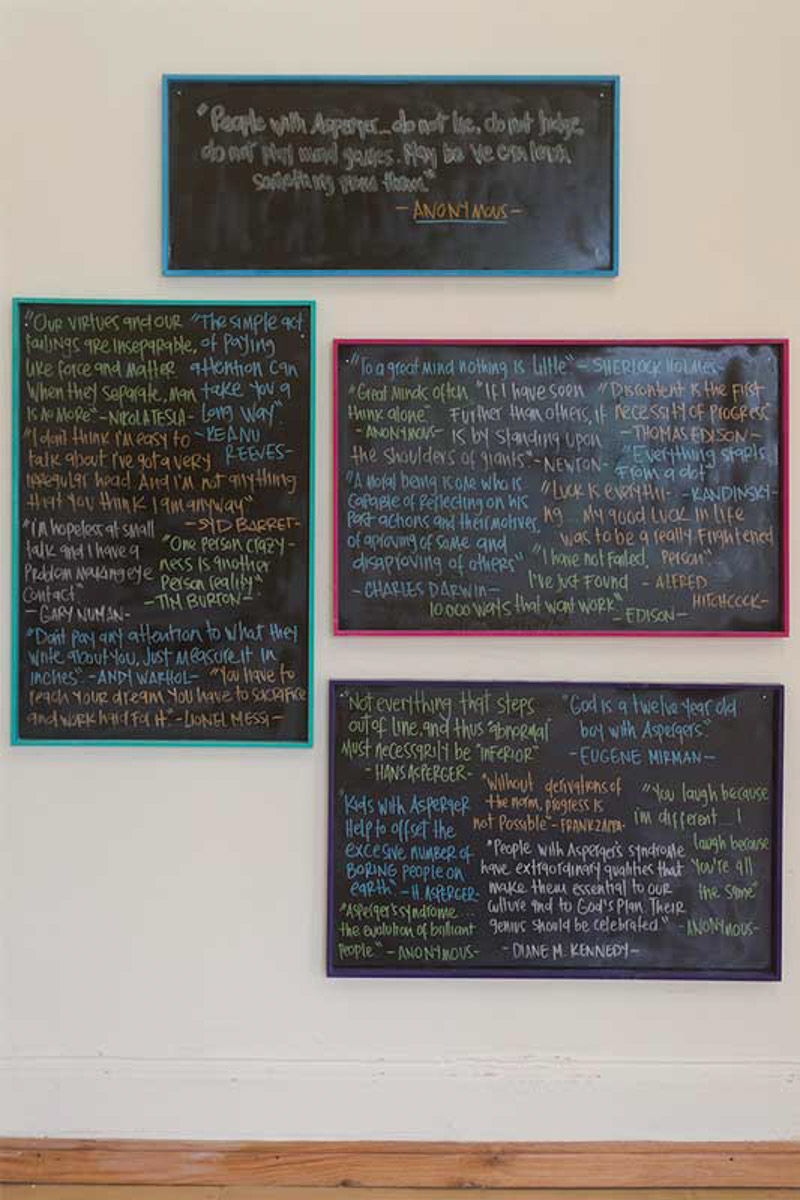 "People with Asperger... do not lie, do not judge,
do not play mind games. May be We can learn
something from them."
-ANONYMOUS-
"Our virtues and our
failings are inseparable,
like force and matter
When they separate, man
is no more" -NIKOLA TESLA-
"The simple act
of paying
attention can
take you a
long way".
-KEANU
REEVES-
"I don't think I'm easy to
talk about I've got a very
irregular head. And I'm not anything
that you think I am anyway"
-SYD BARRET-
"I'm hopeless at small
talk and I have a
problem making eye
contact"
-GARY NUMAN-
"One person crazy-
ness is another
person reality"
-TIM BURTON-
"Dont pay any attention to what they
write about you. Just measure it in
inches" -ANDY WARHOL-
"You have to
reach your dream You have to sacrifice
and work hard for it" -LIONEL MESSI-
"To a great mind nothing is little" - SHERLOCK HOLMES-
"Great minds often
think alone"
-ANONYMOUS-
"If I have seen
Further than others, it
is by standing upon
the shoulders of giants" -NEWTON-
"Discontent is the first
necessity of progress"
-THOMAS EDISON-
"Everything starts
From a dot"
-KANDINSKY-
"A moral being is one who is
capable of reflecting on his
Past actions and their motives,
of aproving of some and
disaproving of others"
-CHARLES DARWIN-
"Luck is everythi-
ng... My good luck in life
was to be a really frightened
person"
- ALFRED
HITCHCOCK-
"I have not failed.
I've just found
10.000 ways that wont work"
-EDISON-
"Not everything that steps
out of line, and thus "abnormal"
Must necessarily be "inferior"
-HANS ASPERGER-
"God is a twelve year old
boy with Aspergers."
-EUGENE MIRMAN-
"Without derivations of
the norm, progress is
not possible" -FRANK ZAPPA-
"Kids with Asperger
Help to offset the
excesive number of
BORING people on
earth" -H. ASPERGER-
"You laugh because
i'm different... I
laugh because
You're all
the same"
-ANONYMOUS-
"People with Asperger's syndrome
have extraordinary qualities that
make them essential to our
culture and to God's Plan. Their
genius should be celebrated."
-DIANE M. KENNEDY-
"Asperger's syndrome...
the evolution of brilliant
people" -ANONYMOUS-